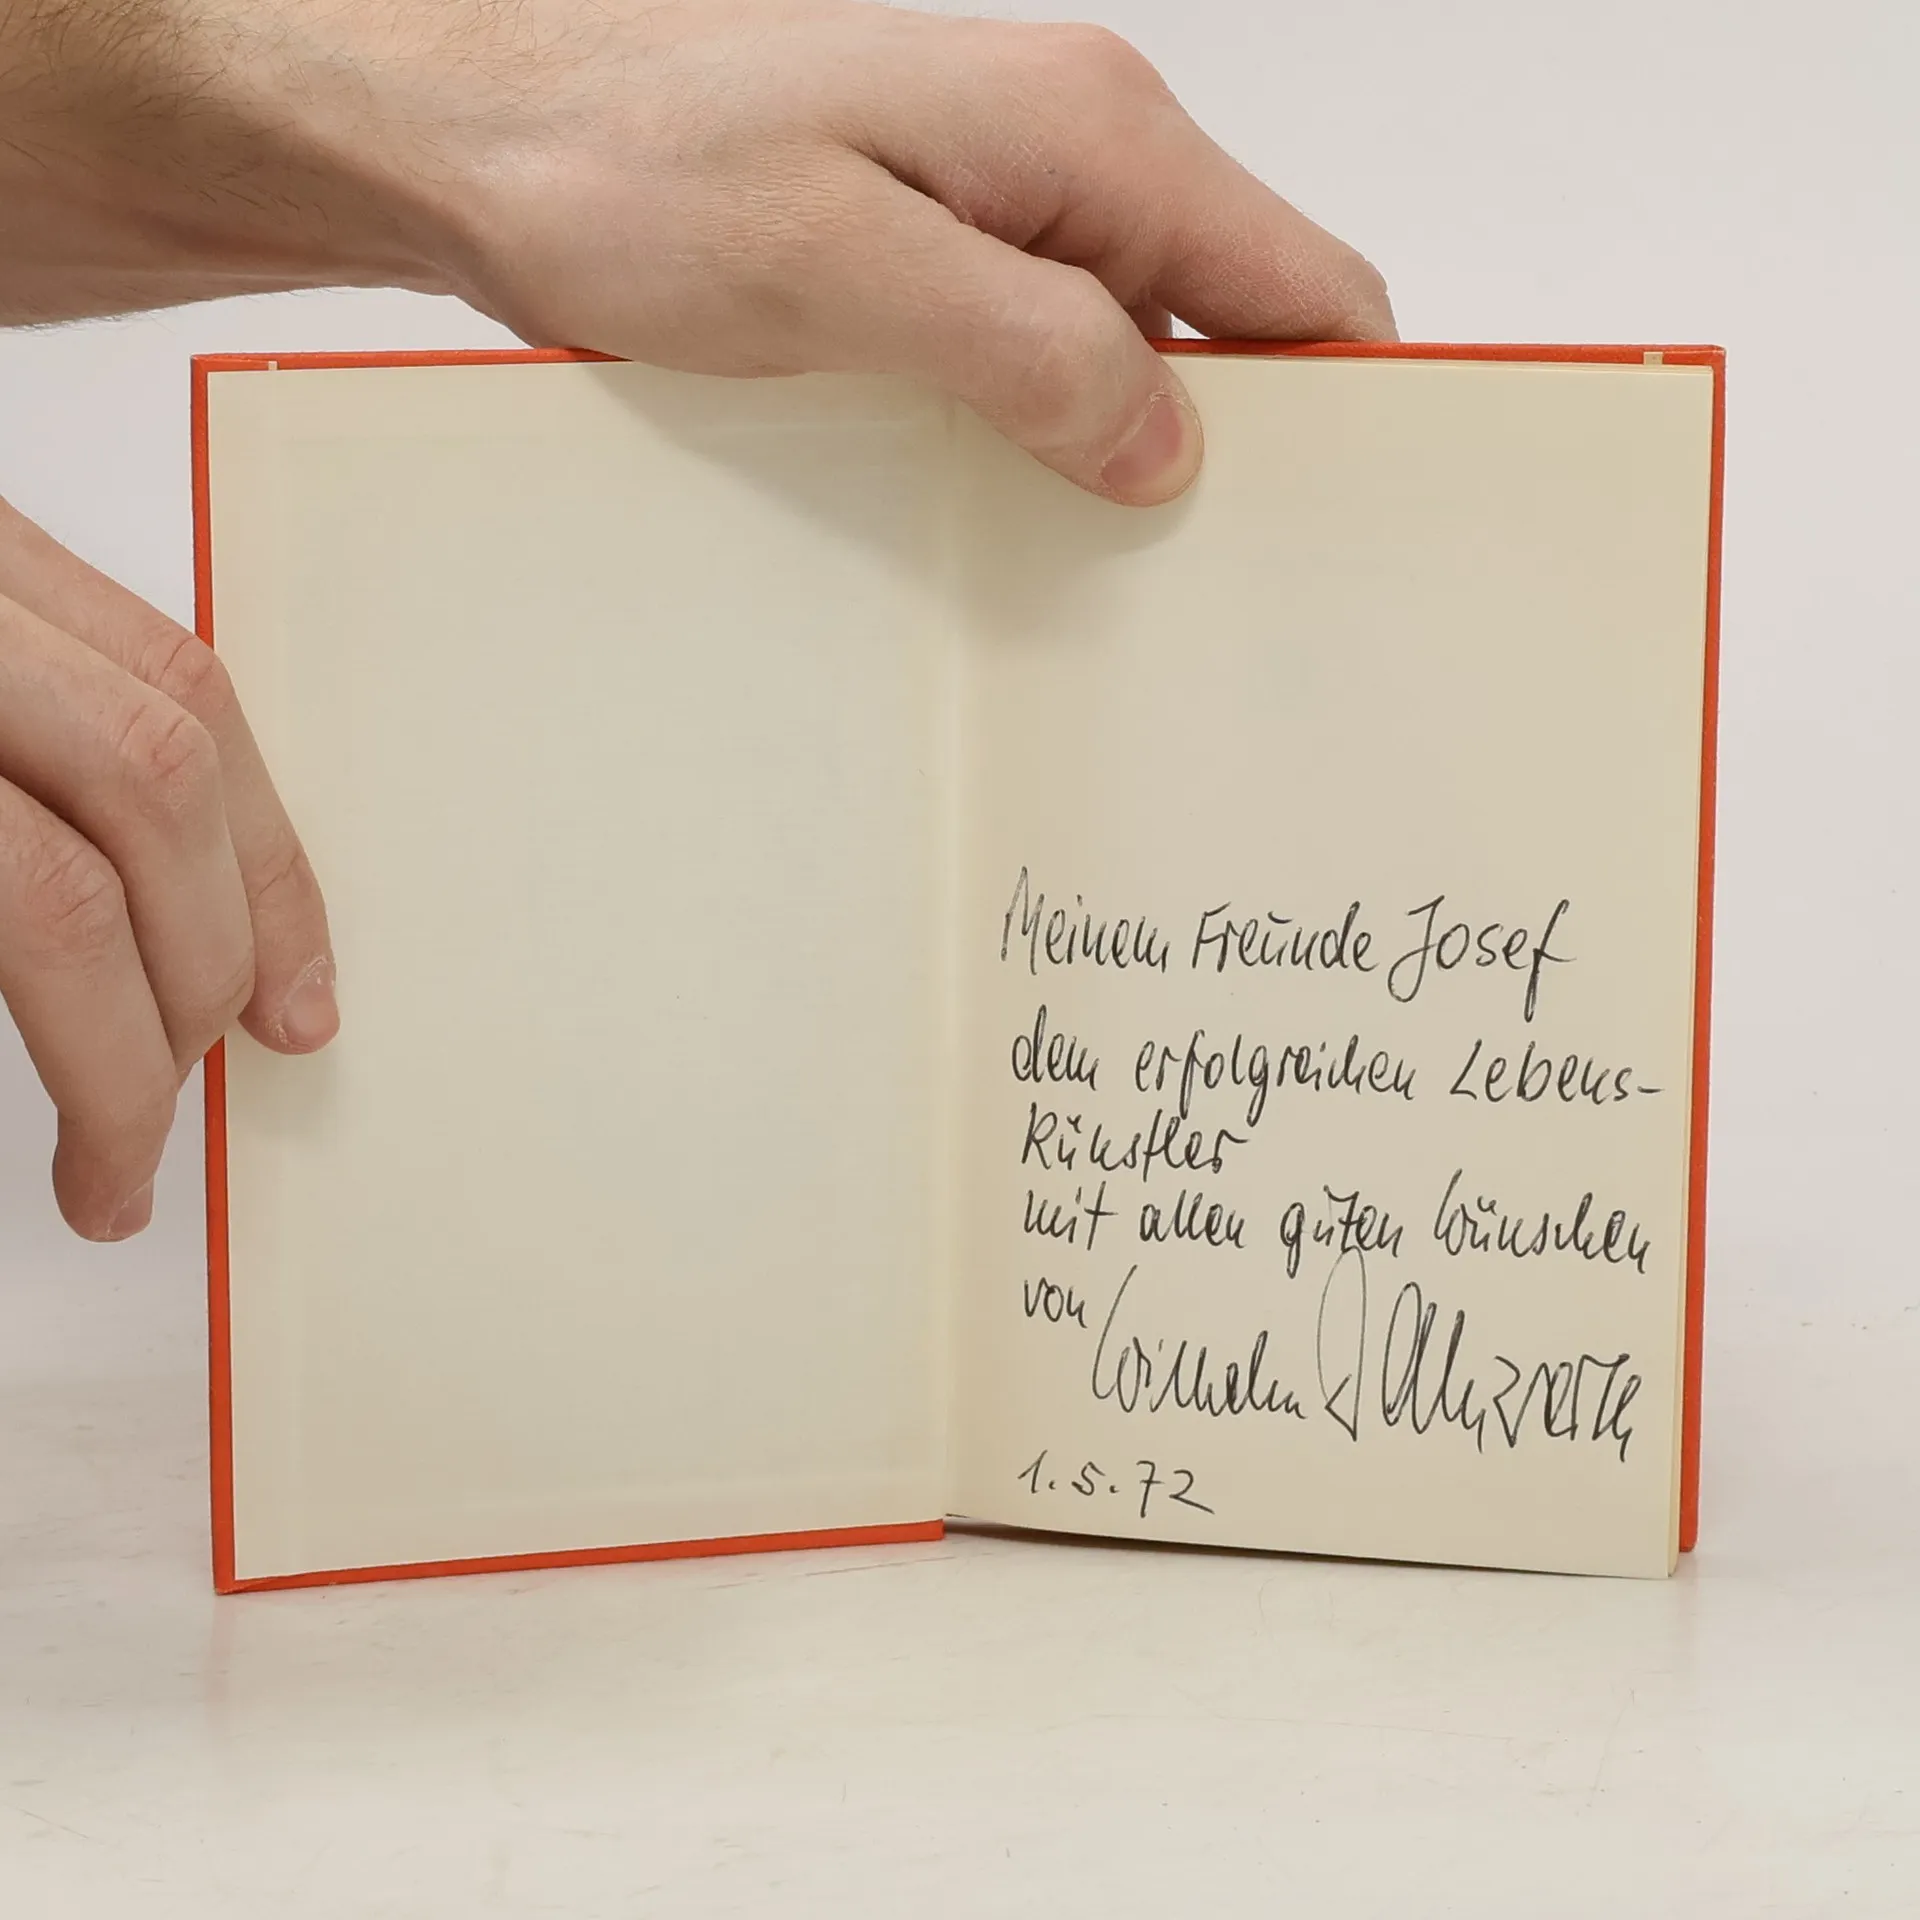 Meinem Freunde Josef
dem erfolgreichen Lebens-
künstler
mit allen guten Wünschen
von Wilhelm
1.5.72